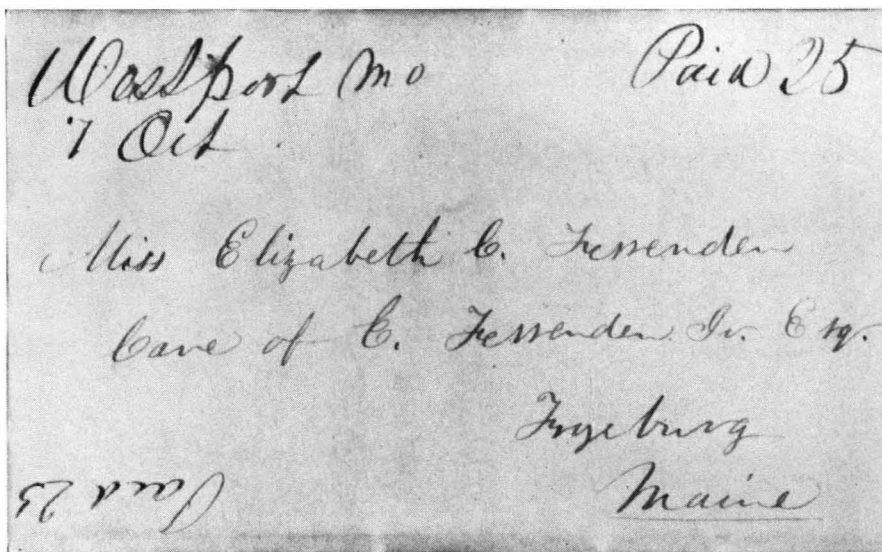 Westport Mo
7 Oct
Paid 25
Miss Elizabeth C. Fessenden
Care of C. Fessenden Jr. Esq.
Fryeburg
Maine
Paid 25